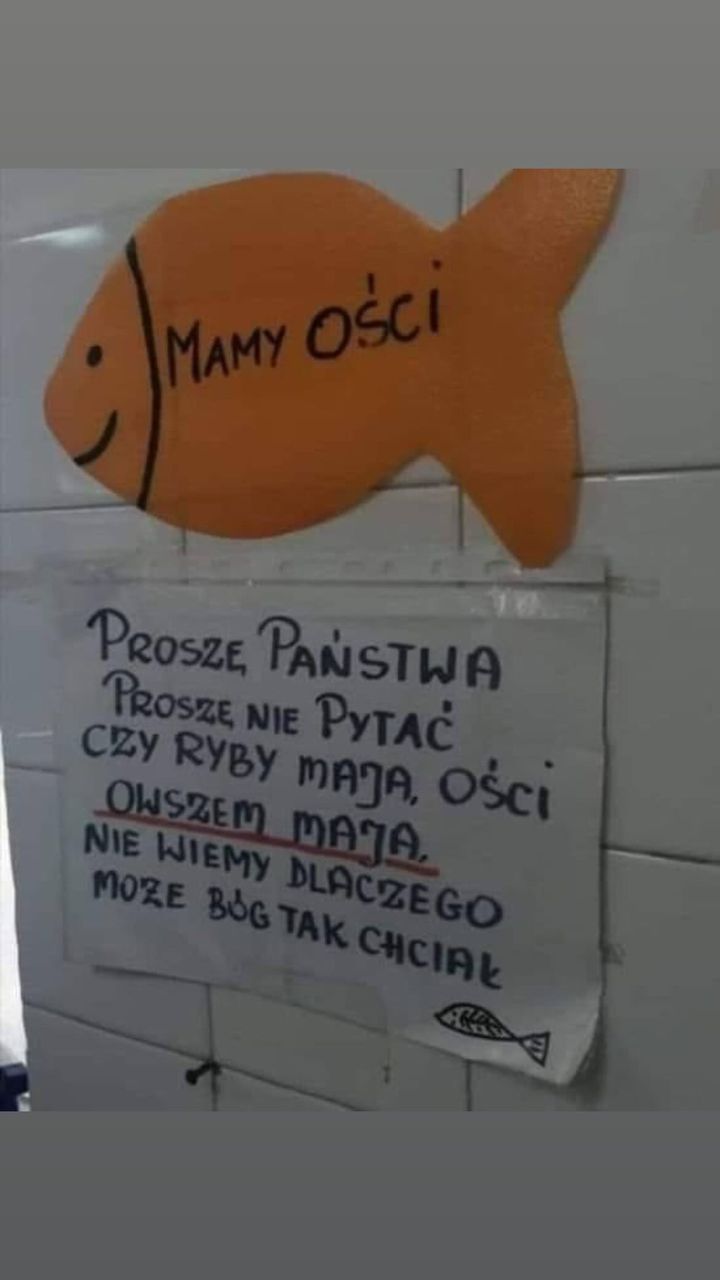 MAMY OŚCI
PROSZĘ PAŃSTWA
PROSZĘ NIE PYTAĆ
CZY RYBY MAJĄ OŚCI
OWSZEM MAJĄ
NIE WIEMY DLACZEGO
MOŻE BÓG TAK CHCIAŁ